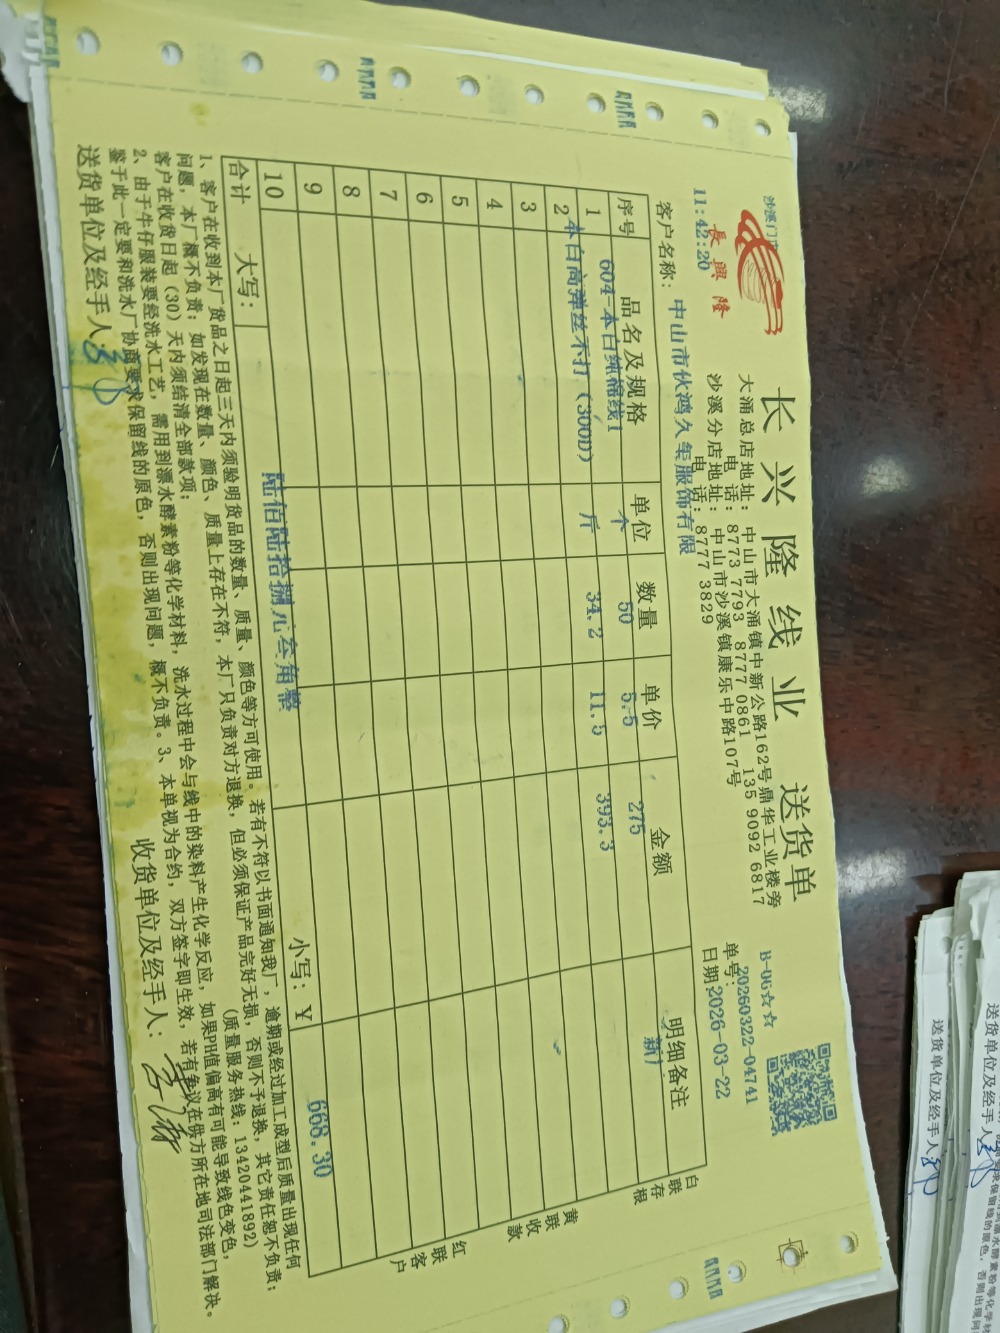 沙溪门市
長興隆
11:42:20
长兴隆线业 送货单
大涌总店地址：中山市大涌镇中新公路162号鼎华工业楼旁
电话：8773 7793 8777 0861 135 9092 6817
沙溪分店地址：中山市沙溪镇康乐中路107号
电话：8777 3829
B-06☆☆
单号：20260322-04741
日期：2026-03-22
客户名称：中山市伙鸿久年服饰有限
序号 品名及规格 单位 数量 单价 金额 明细备注
1 604-本白纯棉线1 个 50 5.5 275 新厂
2 本白高弹丝不打（300D） 斤 34.2 11.5 393.3
3
4
5
6
7
8
9
10
合计 大写：陆佰陆拾捌元叁角整 小写：￥ 668.30
白联存根
黄联收款
红联客户
1、客户在收到本厂货品之日起三天内须验明货品的数量、质量、颜色等方可使用。若有不符以书面通知我厂，逾期或经过加工成型后质量出现任何
问题，本厂概不负责；如发现在数量、颜色、质量上存在不符，本厂只负责对方退换，但必须保证产品完好无损，否则不予退换，其它责任恕不负责；
客户在收货日起（30）天内须结清全部款项； （质量服务热线：13420441892）
2、由于牛仔服装要经洗水工艺，需用到漂水酵素粉等化学材料，洗水过程中会与线中的染料产生化学反应，如果PH值偏高有可能导致线色变色，
鉴于此一定要和洗水厂协商要求保留线的原色，否则出现问题，概不负责。3、本单视为合约，双方签字即生效，若有争议在供方所在地司法部门解决。
送货单位及经手人： 收货单位及经手人：
送货单位及经手人
送货单位及经手人